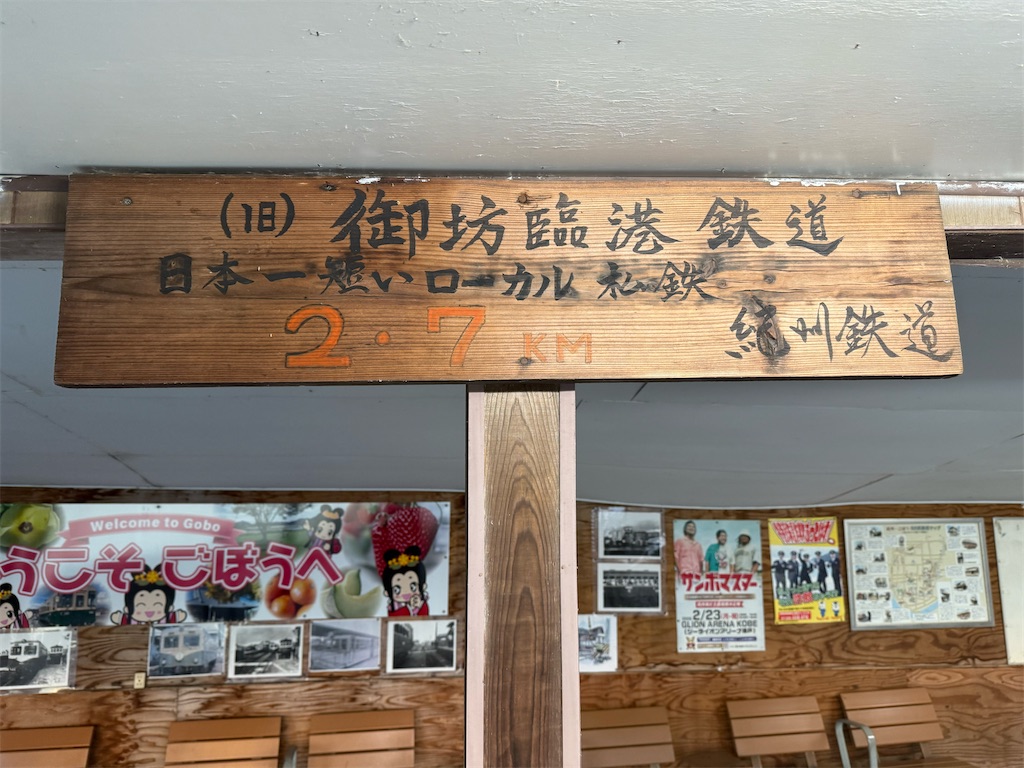 (旧)御坊臨港鉄道
日本一短いローカル私鉄
2.7KM
紀州鉄道
Welcome to Gobo
うこそ ごぼうへ
サンボマスター
2/23
GLION ARENA KOBE
(ジーライオンアリーナ神戸)